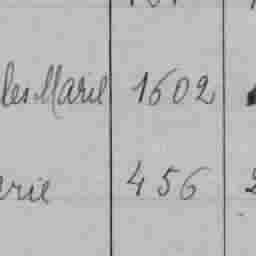 les Marie 1602
erie 456